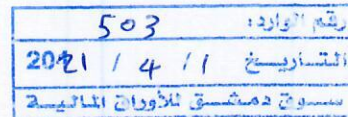 رقم الوارد: 503
التاريخ 1 / 4 / 2021
سوق دمشق للأوراق المالية